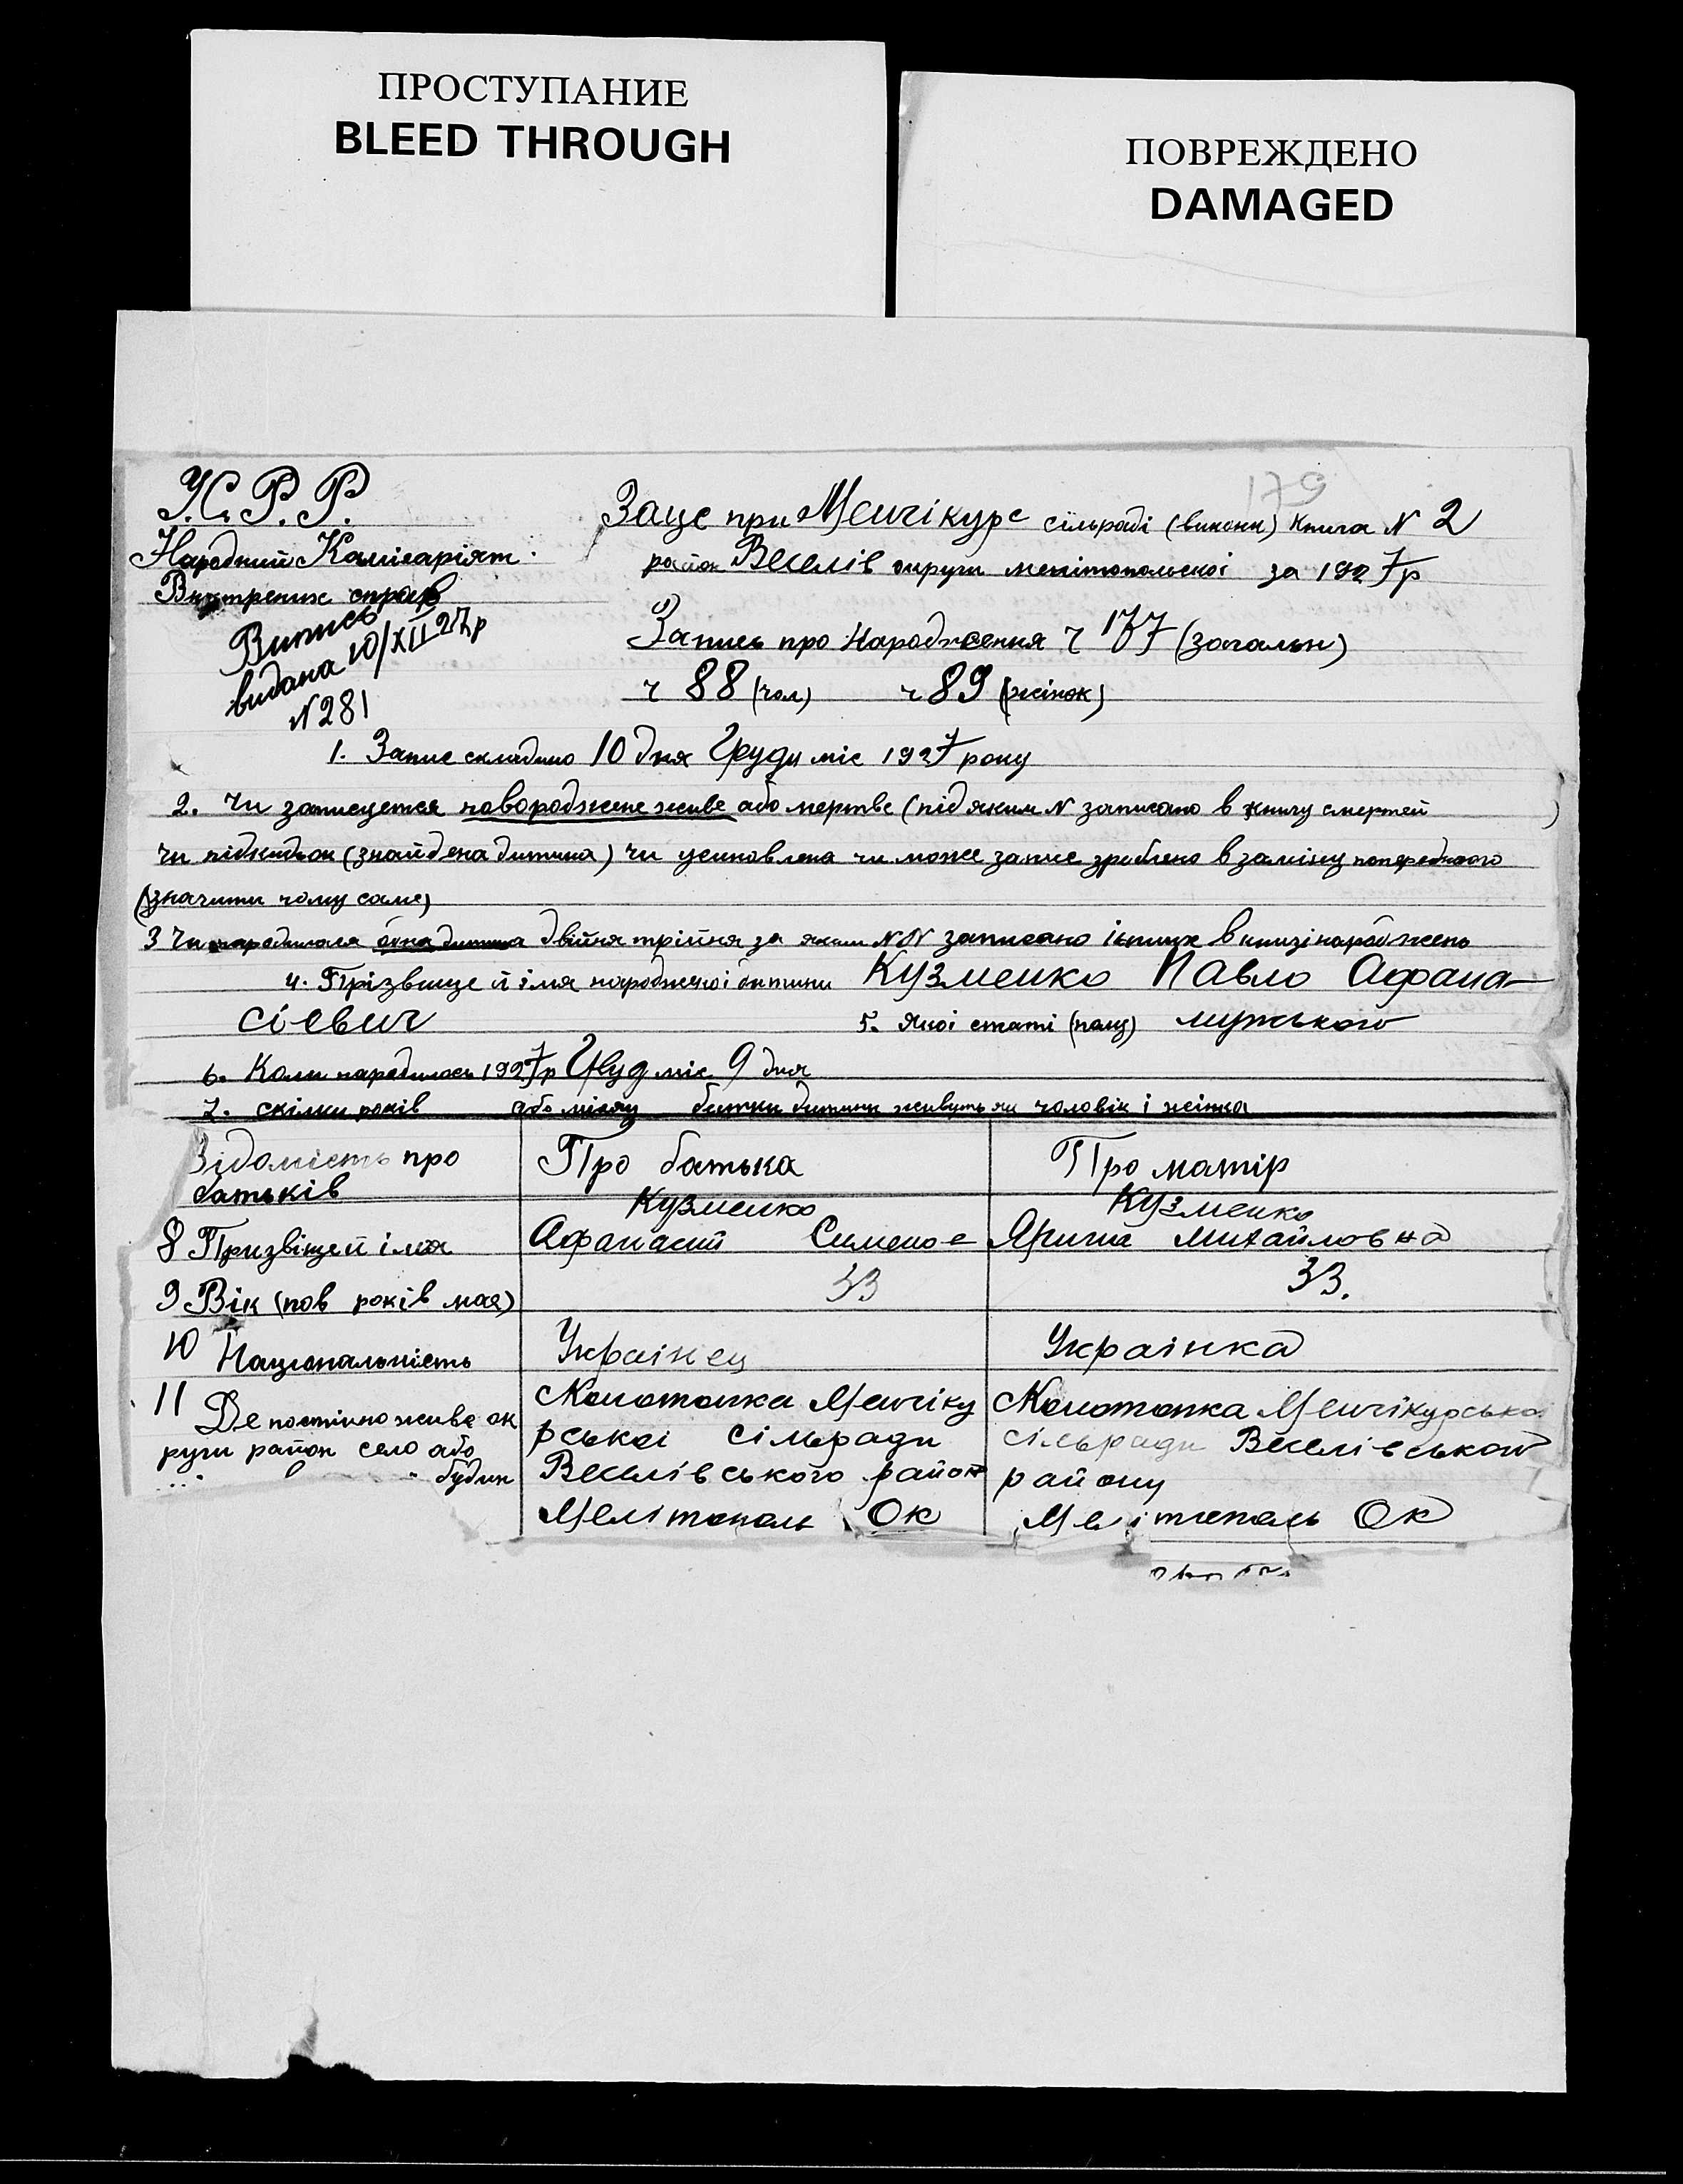 ПРОСТУПАНИЕ
BLEED THROUGH
ПОВРЕЖДЕНО
DAMAGED
179
У.С.Р.Р.
Народний Комісаріят
Внутренних справ
Випись
видана 10/XII 27р
N 281
Загс при Менчікурс сільраді (викони) книга N 2
район Веселів округи мелітопольскої за 1927р
Запись про Народження ч 177 (загальн)
ч 88 (чол) ч 89 (жінок)
1. Запис складено 10 дня Груды міс 1927 року
2. Чи записуется новороджене живе або мертве (під яким N записано в книгу смертей )
чи підкидьок (знайдена дитина) чи усиновлена чи може запис зроблено в заміну попереднього
(значити чому саме)
3 Чи народилася одна дитина двійня трійня за яким NN записано інших в книзі народжень
4. Прізвище й імя народженої дитини Кузменко Павло Афана-
сіевич 5. Якої статі (полу) мужського
6. Коли народилось 1927р Груд міс 9 дня
7. скілки років або місяц батьки дитини живуть як чоловік і жінка
Відомість про батьків
Про батька
Про матір
8 Призвіще й імя
Кузменко
Афанасий Симено
Кузменко
Ярина Михайловна
9 Вік (пов років мая)
33
33.
10 Національність
Українец
Українка
11 Де постійно живе ок
руги район село або
будин
Конотопка Менчіку
рської сільради
Веселівського район
Мелітополь Ок
Конотопка Менчікурсько
сільради Веселівськой
району
Мелітополь Ок